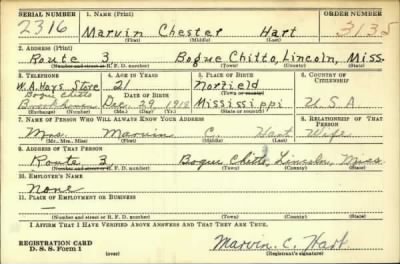 SERIAL NUMBER 1. NAME (Print) ORDER NUMBER
2316 Marvin Chester Hart 3135
(First) (Middle) (Last)
2. ADDRESS (Print)
Route 3 Bogue Chitto, Lincoln, Miss.
(Number and street or R. F. D. number) (Town) (County) (State)
3. TELEPHONE 4. AGE IN YEARS 5. PLACE OF BIRTH 6. COUNTRY OF CITIZENSHIP
W.A. Hays Store 21 Norfield
Bogue Chitto DATE OF BIRTH (Town or county)
Brookhaven Dec. 29 1918 Mississippi U.S.A
(Exchange) (Number) (Mo.) (Day) (Yr.) (State or country)
7. NAME OF PERSON WHO WILL ALWAYS KNOW YOUR ADDRESS 8. RELATIONSHIP OF THAT PERSON
Mrs. Marvin C. Hart Wife
(Mr., Mrs., Miss) (First) (Middle) (Last)
9. ADDRESS OF THAT PERSON
Route 3 Bogue Chitto, Lincoln, Miss
(Number and street or R. F. D. number) (Town) (County) (State)
10. EMPLOYER'S NAME
None
11. PLACE OF EMPLOYMENT OR BUSINESS
—
(Number and street or R. F. D. number) (Town) (County) (State)
I AFFIRM THAT I HAVE VERIFIED ABOVE ANSWERS AND THAT THEY ARE TRUE.
REGISTRATION CARD Marvin. C. Hart
D. S. S. Form 1 (over) (Registrant's signature)